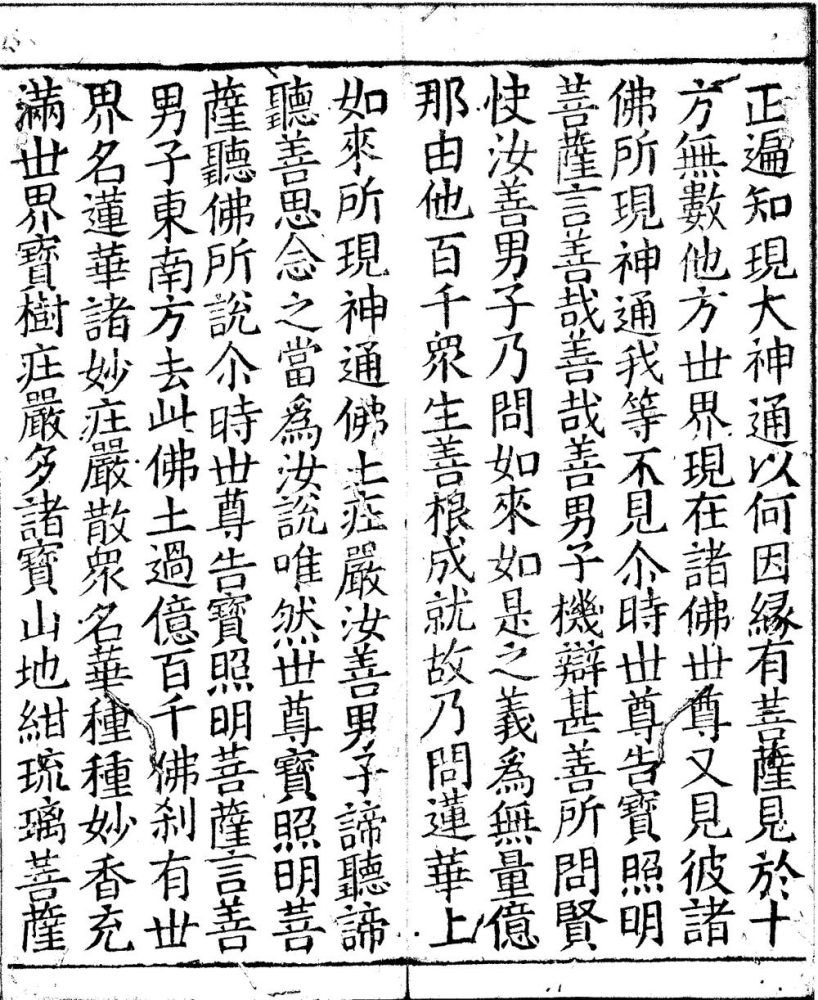 正遍知現大神通以何因緣有菩薩見於十
方無數他方世界現在諸佛世尊又見彼諸
佛所現神通我等不見尒時世尊告寶照明
菩薩言善哉善哉善男子機辯甚善所問賢
快汝善男子乃問如來如是之義爲無量億
那由他百千衆生善根成就故乃問蓮華上
如來所現神通佛土庄嚴汝善男子諦聽諦
聽善思念之當爲汝說唯然世尊寶照明菩
薩聽佛所說尒時世尊告寶照明菩薩言善
男子東南方去此佛土過億百千佛刹有世
界名蓮華諸妙庄嚴散衆名華種種妙香充
滿世界寶樹庄嚴多諸寶山地紺琉璃菩薩